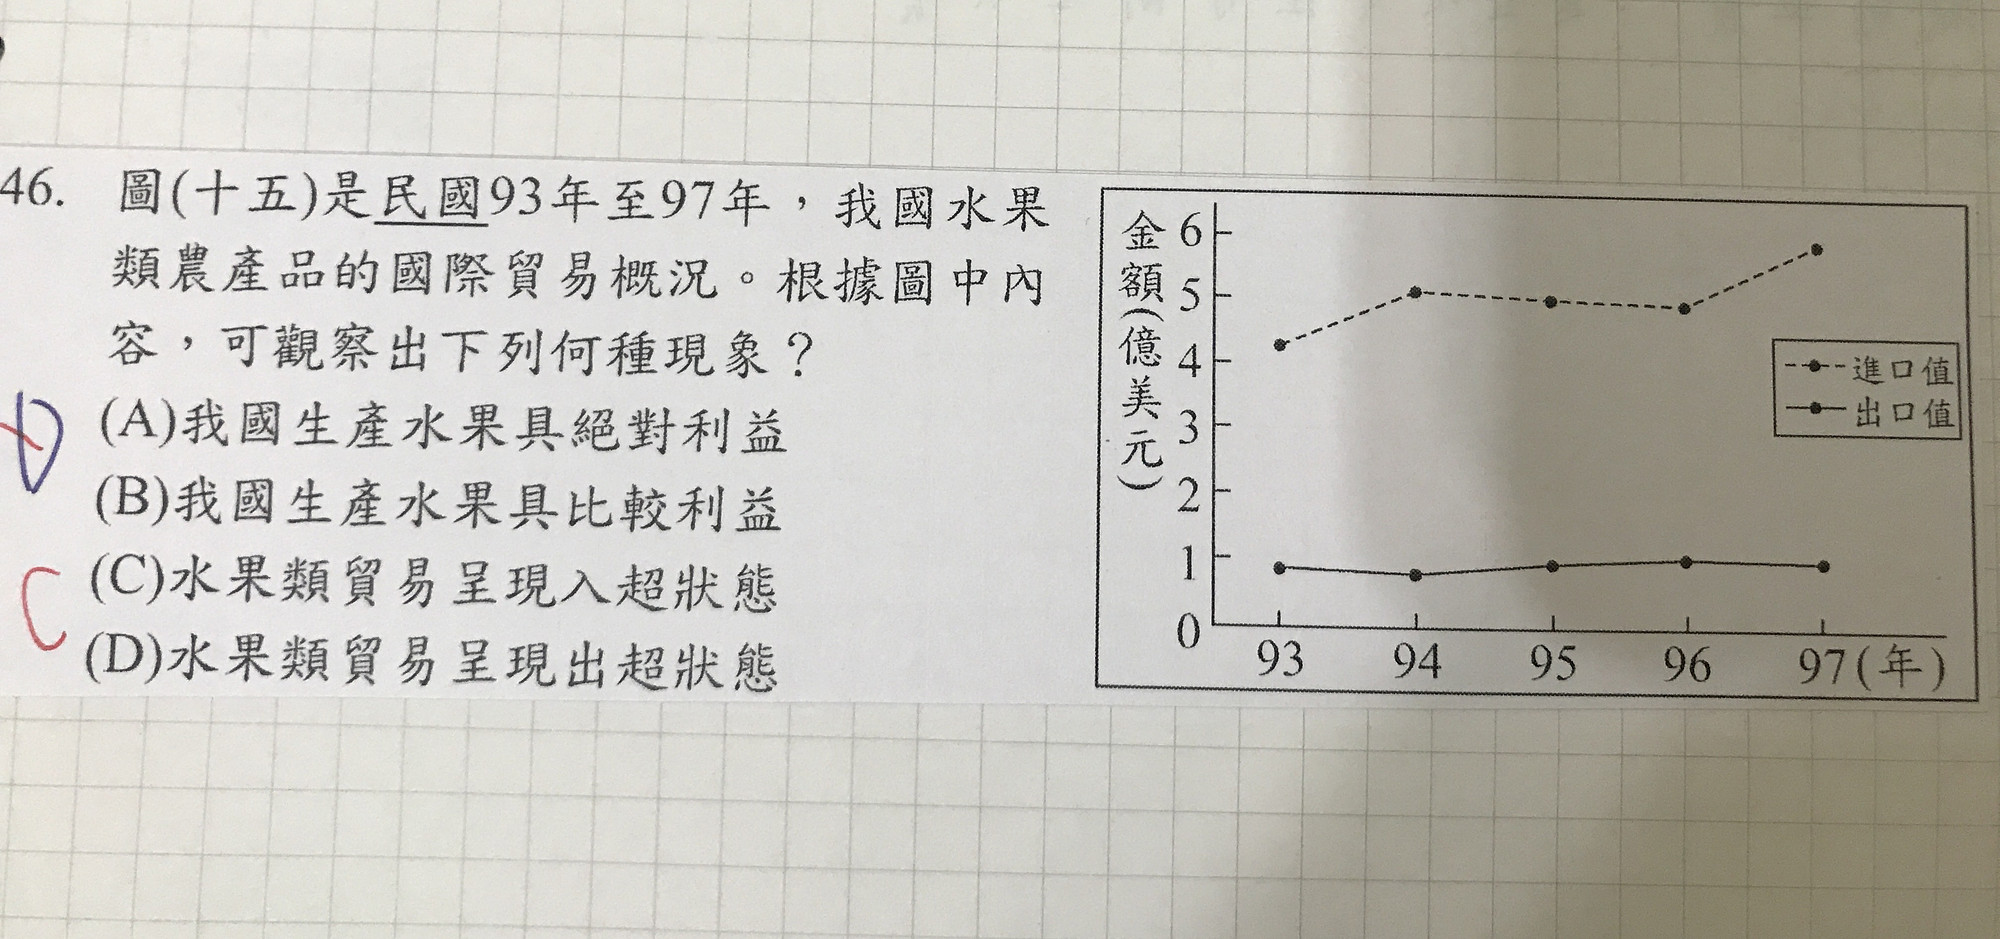 46. 圖(十五)是民國93年至97年，我國水果
類農產品的國際貿易概況。根據圖中內
容，可觀察出下列何種現象？
(A)我國生產水果具絕對利益
(B)我國生產水果具比較利益
(C)水果類貿易呈現入超狀態
(D)水果類貿易呈現出超狀態
D
C
金額(億美元)
6
5
4
3
2
1
0
93 94 95 96 97(年)
進口值
出口值